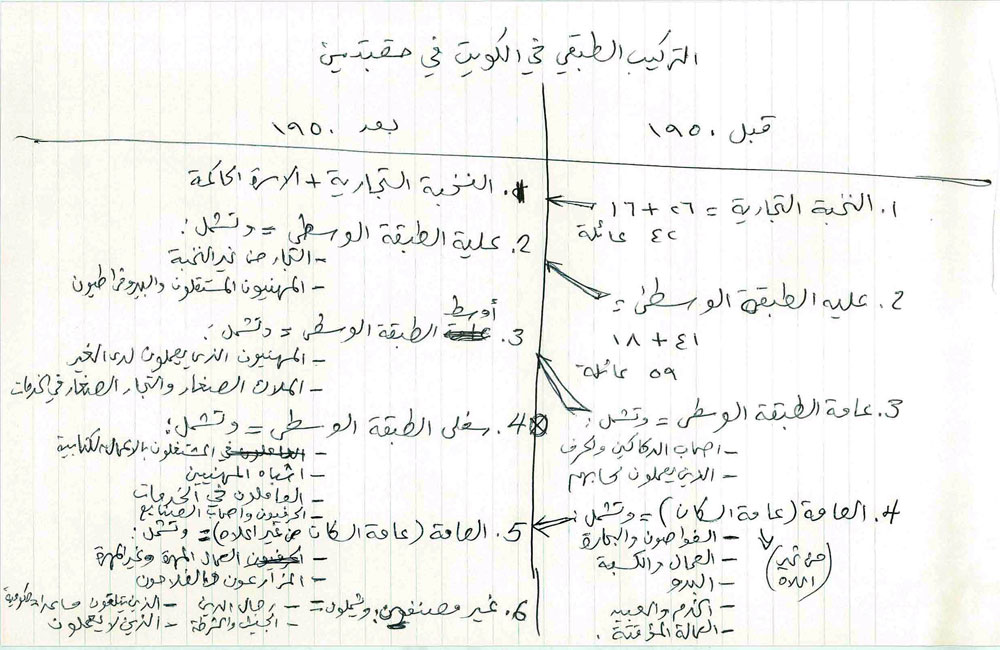 التركيب الطبقي في الكويت في حقبتين
قبل ١٩٥٠
1. النخبة التجارية = ٢٦ + ١٦
٤٢ عائلة
2. علية الطبقة الوسطى =
٤١ + ١٨
٥٩ عائلة
3. عامة الطبقة الوسطى = وتشمل:
- اصحاب الدكاكين والحرف
- الذين يعملون لحسابهم
4. العامة (عامة السكان) = وتشمل:
(من غير اعلاه)
- الغواصون والبحارة
- العمال والكسبة
- البدو
- الخدم والعبيد
- العمالة المؤقتة.
بعد ١٩٥٠
1. النخبة التجارية + الاسرة الحاكمة
2. علية الطبقة الوسطى = وتشمل:
- التجار من غير النخبة
- المهنيون المستقلون والبيروقراطيون
3. أوسط الطبقة الوسطى = وتشمل:
- المهنيون الذين يعملون لدى الغير
- الملاك الصغار والتجار الصغار في الخدمات
4. سفلى الطبقة الوسطى = وتشمل:
- المشتغلون بالاعمال الكتابية
- اشباه المهنيين
- العاملون في الخدمات
- الحرفيون واصحاب الصنايع
5. العامة (عامة السكان من غير اعلاه) = وتشمل:
- العمال المهرة وغير المهرة
- المزارعون والفلاحون
6. غير مصنفين: ويشملون =
- رجال الدين - الذين يتلقون مساعدات حكومية
- الجيش والشرطة - الذين لا يعملون